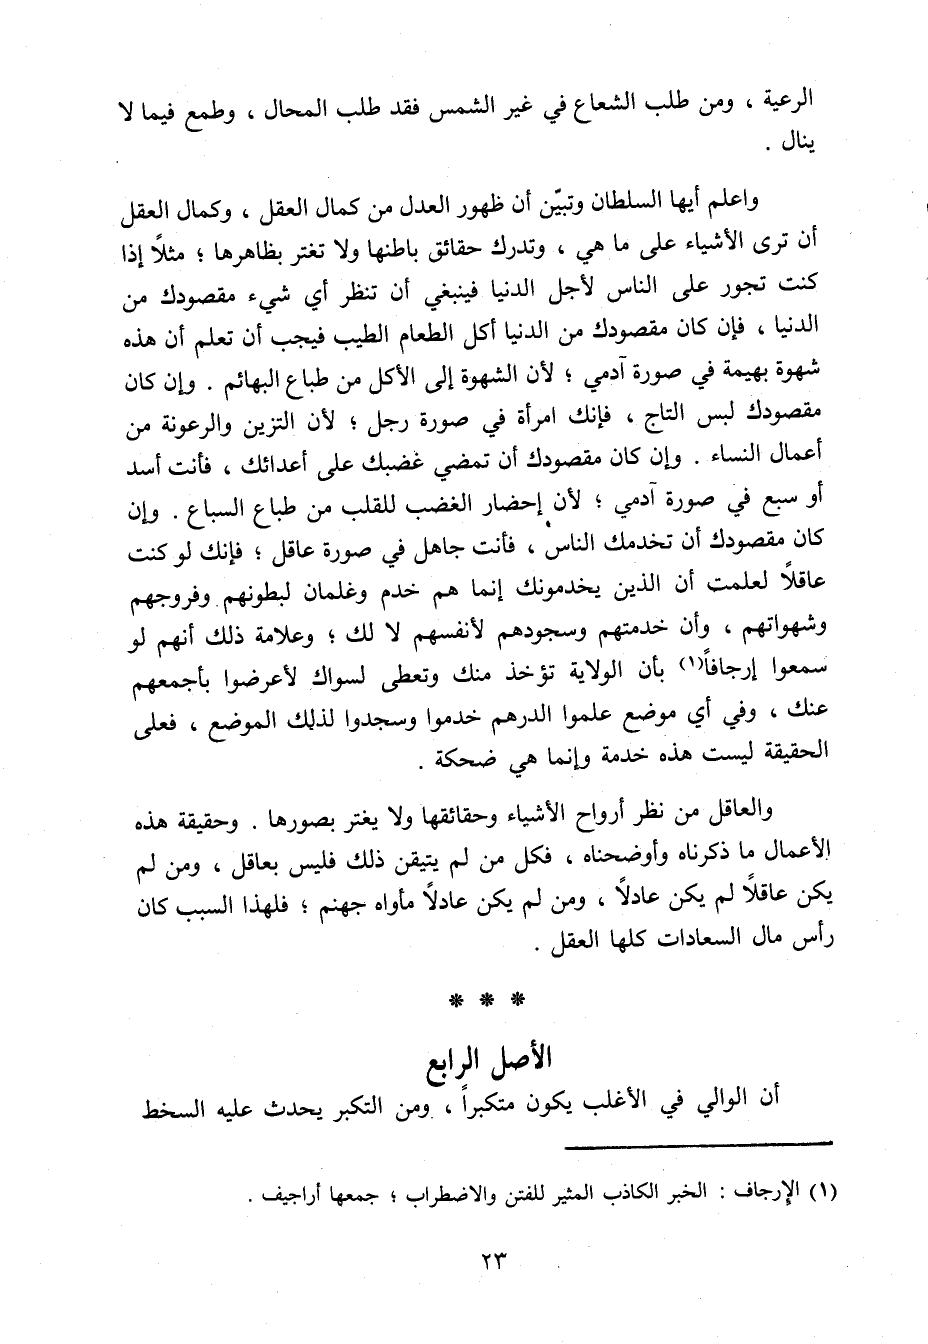 الرعية ، ومن طلب الشعاع في غير الشمس فقد طلب المحال ، وطمع فيما لا
ينال .
واعلم أيها السلطان وتبيّن أن ظهور العدل من كمال العقل ، وكمال العقل
أن ترى الأشياء على ما هي ، وتدرك حقائق باطنها ولا تغتر بظاهرها ؛ مثلاً إذا
كنت تجور على الناس لأجل الدنيا فينبغي أن تنظر أي شيء مقصودك من
الدنيا ، فإن كان مقصودك من الدنيا أكل الطعام الطيب فيجب أن تعلم أن هذه
شهوة بهيمة في صورة آدمي ؛ لأن الشهوة إلى الأكل من طباع البهائم . وإن كان
مقصودك لبس التاج ، فإنك امرأة في صورة رجل ؛ لأن التزين والرعونة من
أعمال النساء . وإن كان مقصودك أن تمضي غضبك على أعدائك ، فأنت أسد
أو سبع في صورة آدمي ؛ لأن إحضار الغضب للقلب من طباع السباع . وإن
كان مقصودك أن تخدمك الناس ، فأنت جاهل في صورة عاقل ؛ فإنك لو كنت
عاقلاً لعلمت أن الذين يخدمونك إنما هم خدم وغلمان لبطونهم وفروجهم
وشهواتهم ، وأن خدمتهم وسجودهم لأنفسهم لا لك ؛ وعلامة ذلك أنهم لو
سمعوا إرجافاً(١) بأن الولاية تؤخذ منك وتعطى لسواك لأعرضوا بأجمعهم
عنك ، وفي أي موضع علموا الدرهم خدموا وسجدوا لذلك الموضع ، فعلى
الحقيقة ليست هذه خدمة وإنما هي ضحكة .
والعاقل من نظر أرواح الأشياء وحقائقها ولا يغتر بصورها . وحقيقة هذه
الأعمال ما ذكرناه وأوضحناه ، فكل من لم يتيقن ذلك فليس بعاقل ، ومن لم
يكن عاقلاً لم يكن عادلاً ، ومن لم يكن عادلاً مأواه جهنم ؛ فلهذا السبب كان
رأس مال السعادات كلها العقل .
* * *
الأصل الرابع
أن الوالي في الأغلب يكون متكبراً ، ومن التكبر يحدث عليه السخط
(١) الإرجاف : الخبر الكاذب المثير للفتن والاضطراب ؛ جمعها أراجيف .
٢٣